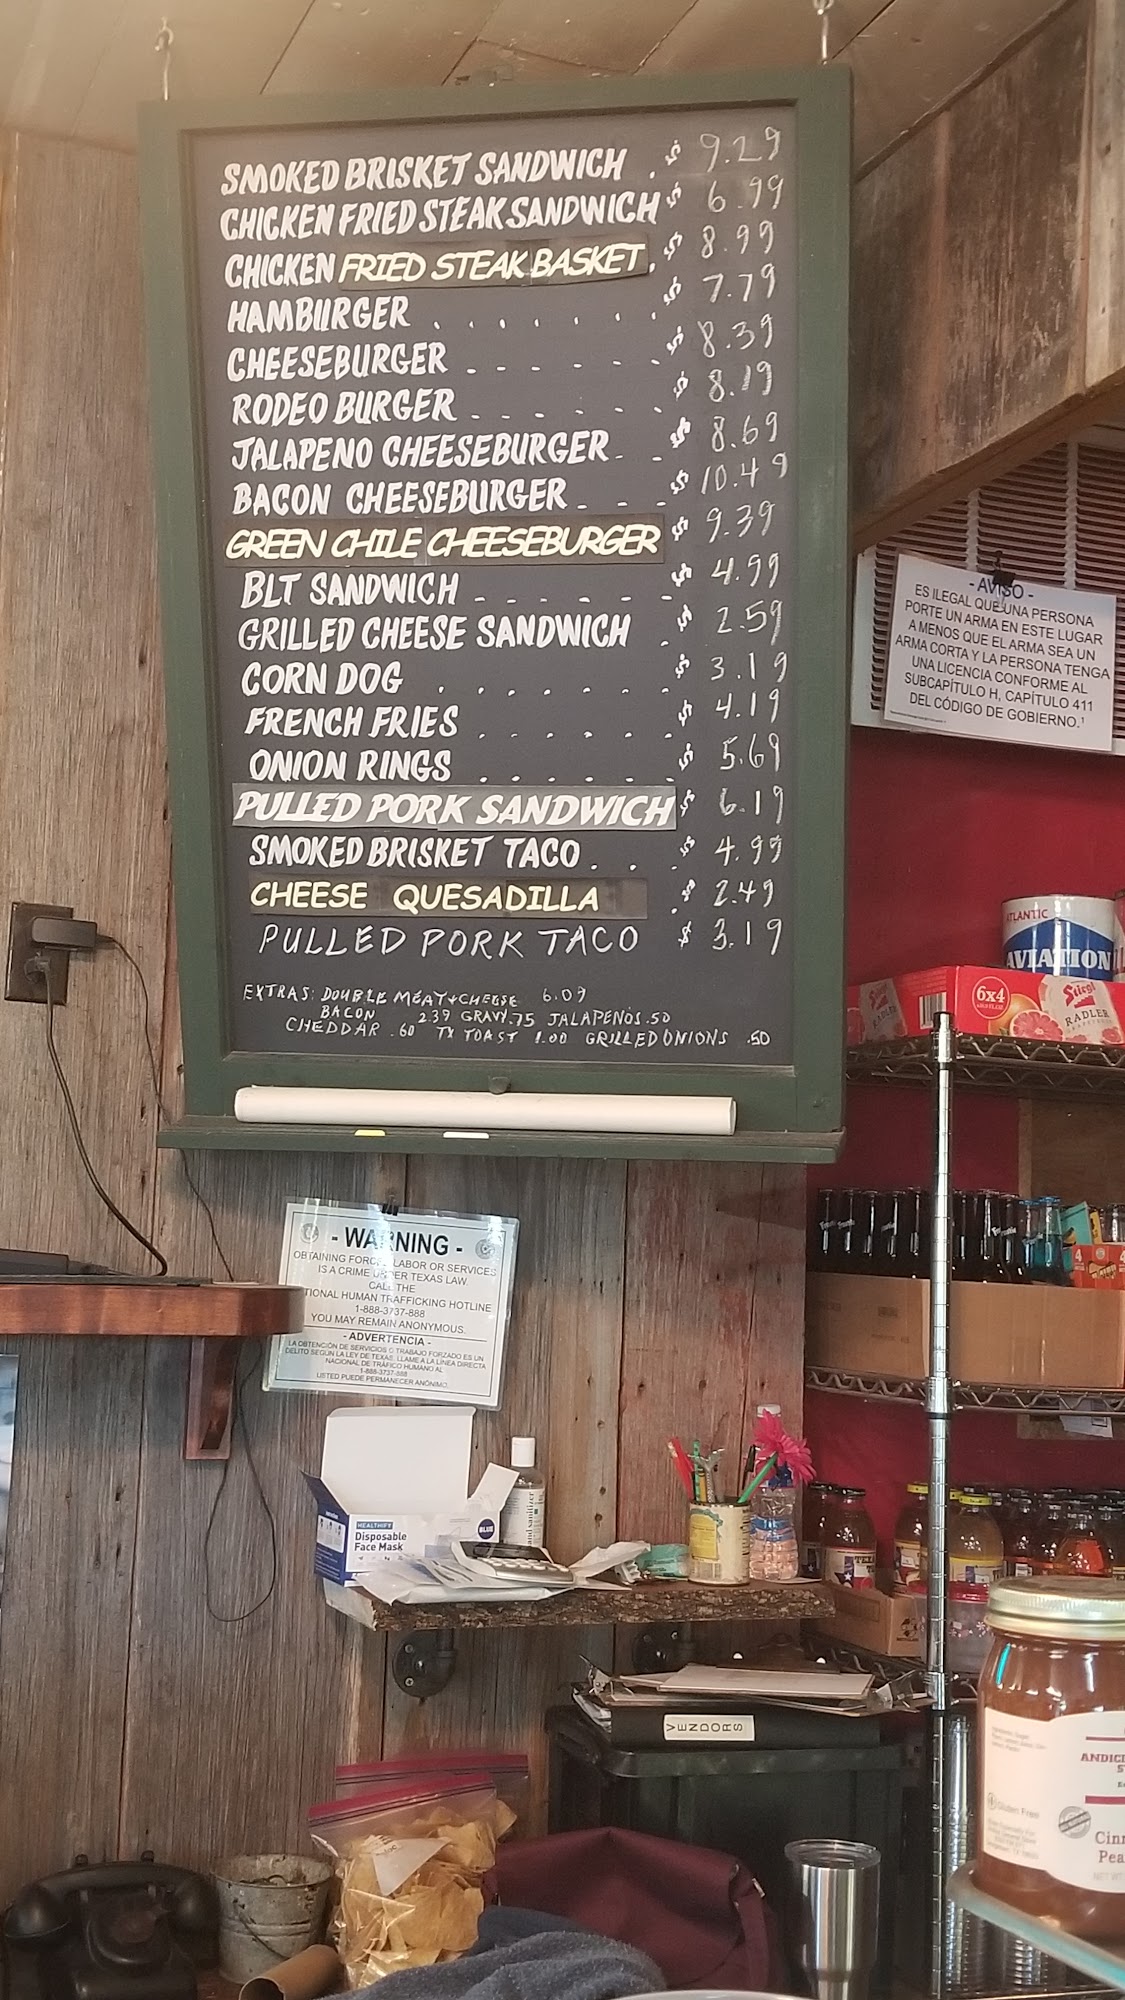 SMOKED BRISKET SANDWICH . $ 9.29
CHICKEN FRIED STEAK SANDWICH $ 6.99
CHICKEN FRIED STEAK BASKET . $ 8.99
HAMBURGER . . . . . . . $ 7.79
CHEESEBURGER - - - - - - $ 8.39
RODEO BURGER - - - - - - $ 8.19
JALAPENO CHEESEBURGER - - $ 8.69
BACON CHEESEBURGER - - - $ 10.49
GREEN CHILE CHEESEBURGER $ 9.39
BLT SANDWICH - - - - - - $ 4.99
GRILLED CHEESE SANDWICH . $ 2.59
CORN DOG . . . . . . . $ 3.19
FRENCH FRIES . . . . . . $ 4.19
ONION RINGS . . . . . . $ 5.69
PULLED PORK SANDWICH $ 6.19
SMOKED BRISKET TACO . . . $ 4.99
CHEESE QUESADILLA . $ 2.49
PULLED PORK TACO $ 3.19
EXTRAS: DOUBLE MEAT+CHEESE 6.09
BACON 2.39 GRAVY .75 JALAPENOS .50
CHEDDAR .60 TX TOAST 1.00 GRILLED ONIONS .50
- AVISO -
ES ILEGAL QUE UNA PERSONA
PORTE UN ARMA EN ESTE LUGAR
A MENOS QUE EL ARMA SEA UN
ARMA CORTA Y LA PERSONA TENGA
UNA LICENCIA CONFORME AL
SUBCAPÍTULO H, CAPÍTULO 411
DEL CÓDIGO DE GOBIERNO.¹
ATLANTIC
AVIATION
6x4
Stiegl
RADLER
- WARNING -
OBTAINING FORCED LABOR OR SERVICES
IS A CRIME UNDER TEXAS LAW.
CALL THE
TIONAL HUMAN TRAFFICKING HOTLINE
1-888-3737-888
YOU MAY REMAIN ANONYMOUS.
- ADVERTENCIA -
LA OBTENCIÓN DE SERVICIOS O TRABAJO FORZADO ES UN
DELITO SEGÚN LA LEY DE TEXAS. LLAME A LA LÍNEA DIRECTA
NACIONAL DE TRÁFICO HUMANO AL
1-888-3737-888
USTED PUEDE PERMANECER ANÓNIMO.
HEALTHIFY
Disposable
Face Mask
BLUE
hand sanitizer
VENDORS
Gluten Free
Cinn
Pea